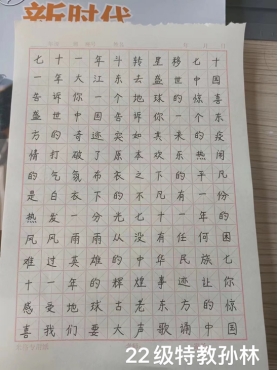 新时代
七十一年斗转星移七十
一年大江东去盛世中国
告诉你一个地球的惊喜
盛世中国告诉你一个东
方的奇迹突如其来的疫
情打破了原本欢乐热闹
的气氛布衣之下的平凡
是白衣下的不凡有一份
热发一分光七十一年的
风风雨雨从没有任何困
难过英雄的中华民族七
十一年的辉煌事迹让你
感受地球古老东方的惊
喜我们要大声歌诵中国
22级特教孙林